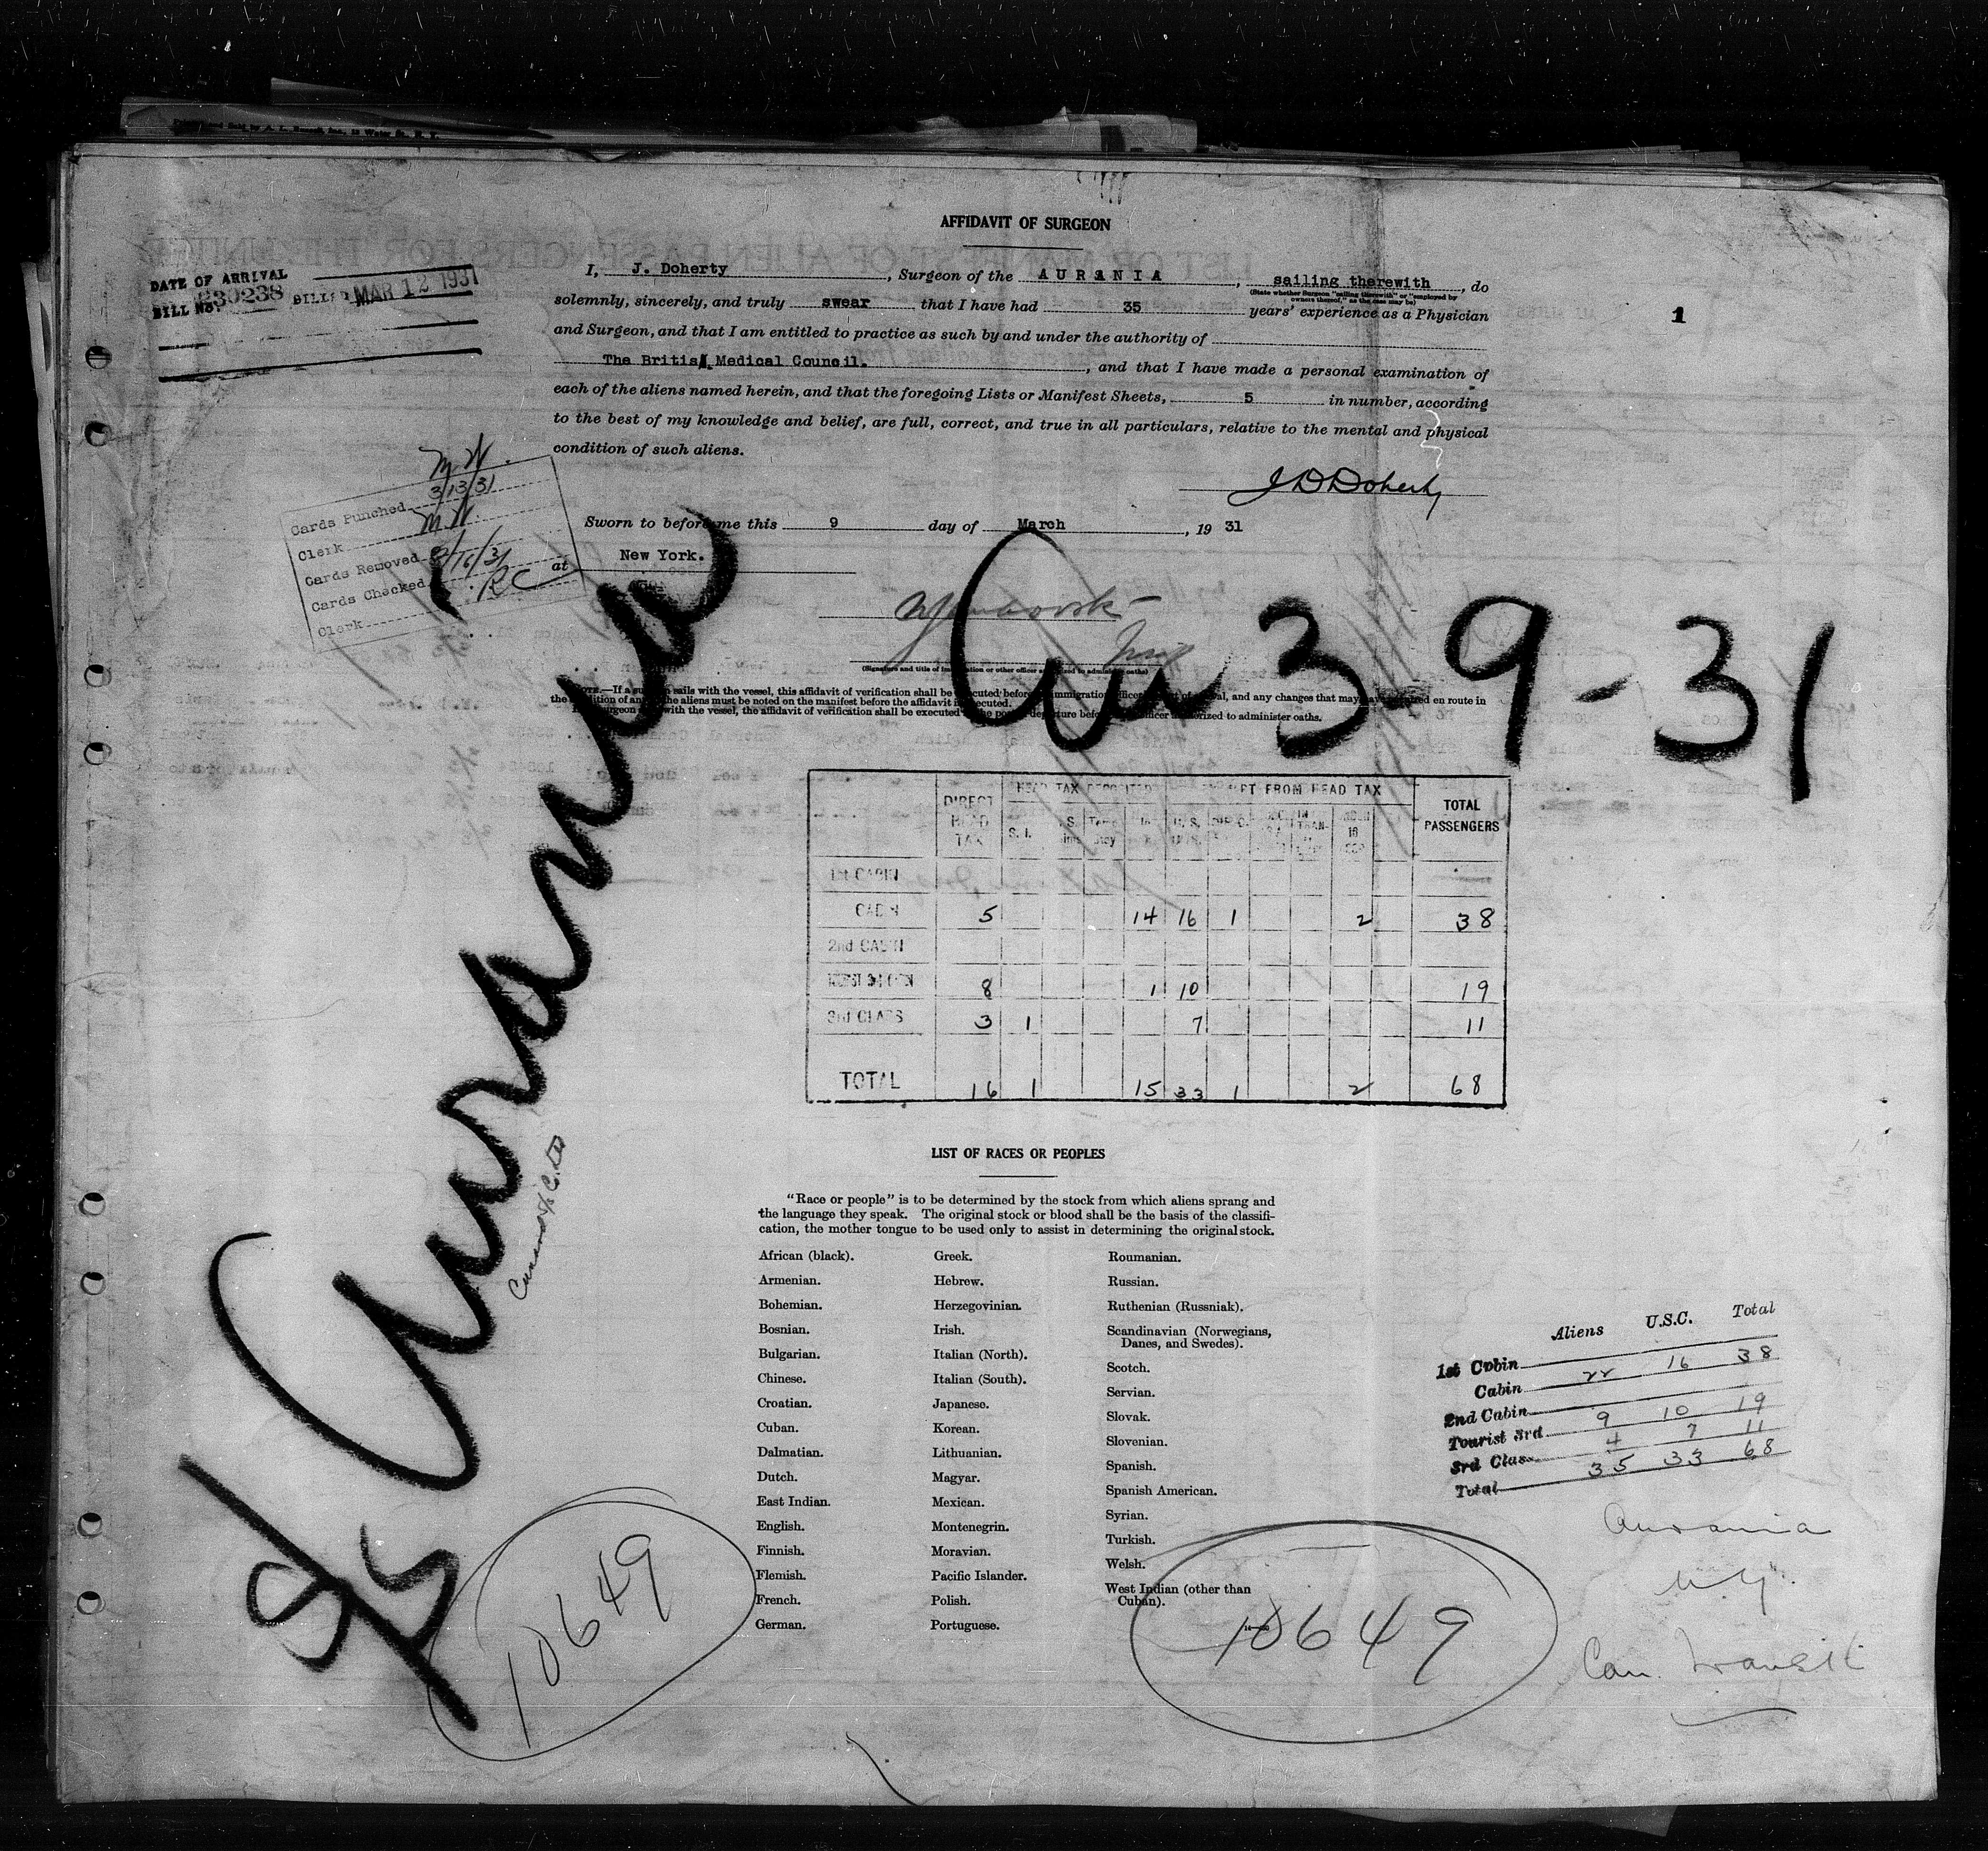 AFFIDAVIT OF SURGEON
DATE OF ARRIVAL
BILL No. 230238 BILLED MAR 12 1931
I, J. Doherty, Surgeon of the AURANIA, sailing therewith, do
(State whether Surgeon "sailing therewith" or "employed by
owners thereof," as the case may be)
solemnly, sincerely, and truly swear that I have had 35 years' experience as a Physician
1
and Surgeon, and that I am entitled to practice as such by and under the authority of
The British Medical Council., and that I have made a personal examination of
each of the aliens named herein, and that the foregoing Lists or Manifest Sheets, 5 in number, according
to the best of my knowledge and belief, are full, correct, and true in all particulars, relative to the mental and physical
condition of such aliens.
J D Doherty
Sworn to before me this 9 day of March, 19 31
at New York.
M W.
Cards Punched 3/13/31
Clerk M W.
Cards Removed 3/16/31
Cards Checked RC
Clerk
(Signature and title of immigration or other officer authorized to administer oaths)
NOTE.—If a surgeon sails with the vessel, this affidavit of verification shall be executed before immigration officer port of arrival, and any changes that may have occurred en route in
the condition of any of the aliens must be noted on the manifest before the affidavit is executed.
surgeon with the vessel, the affidavit of verification shall be executed the port departure before officer authorized to administer oaths.
3-9-31
S/S Aurania
DIRECT HEAD TAX HEAD TAX DEPOSITED EXEMPT FROM HEAD TAX TOTAL PASSENGERS
S. I.
1st CABIN
CABIN 5 14 16 1 2 38
2nd CABIN
TOURIST 3rd CABIN 8 1 10 19
3rd CLASS 3 1 7 11
TOTAL 16 1 15 33 1 2 68
LIST OF RACES OR PEOPLES
"Race or people" is to be determined by the stock from which aliens sprang and
the language they speak. The original stock or blood shall be the basis of the classifi-
cation, the mother tongue to be used only to assist in determining the original stock.
African (black).
Armenian.
Bohemian.
Bosnian.
Bulgarian.
Chinese.
Croatian.
Cuban.
Dalmatian.
Dutch.
East Indian.
English.
Finnish.
Flemish.
French.
German.
Greek.
Hebrew.
Herzegovinian.
Irish.
Italian (North).
Italian (South).
Japanese.
Korean.
Lithuanian.
Magyar.
Mexican.
Montenegrin.
Moravian.
Pacific Islander.
Polish.
Portuguese.
Roumanian.
Russian.
Ruthenian (Russniak).
Scandinavian (Norwegians,
Danes, and Swedes).
Scotch.
Servian.
Slovak.
Slovenian.
Spanish.
Spanish American.
Syrian.
Turkish.
Welsh.
West Indian (other than
Cuban).
Aliens U.S.C. Total
1st Cabin
Cabin 22 16 38
2nd Cabin
Tourist 3rd 9 10 19
3rd Class 4 7 11
Total 35 33 68
Aurania
N.Y.
Can. Transit
10649
10649